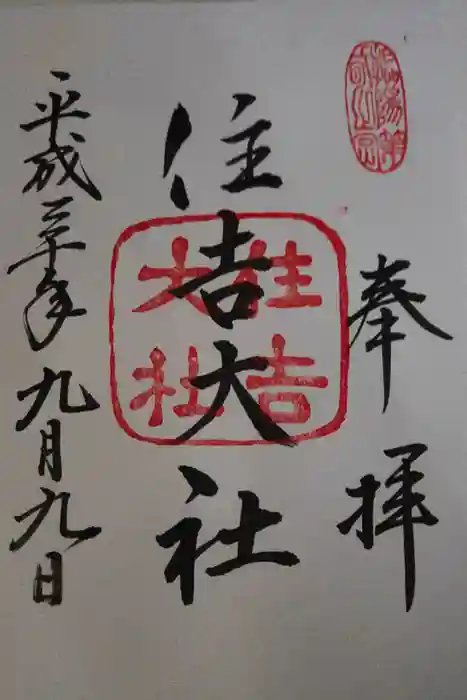 奉拝
住吉大社
住吉
大社
平成三十年九月九日